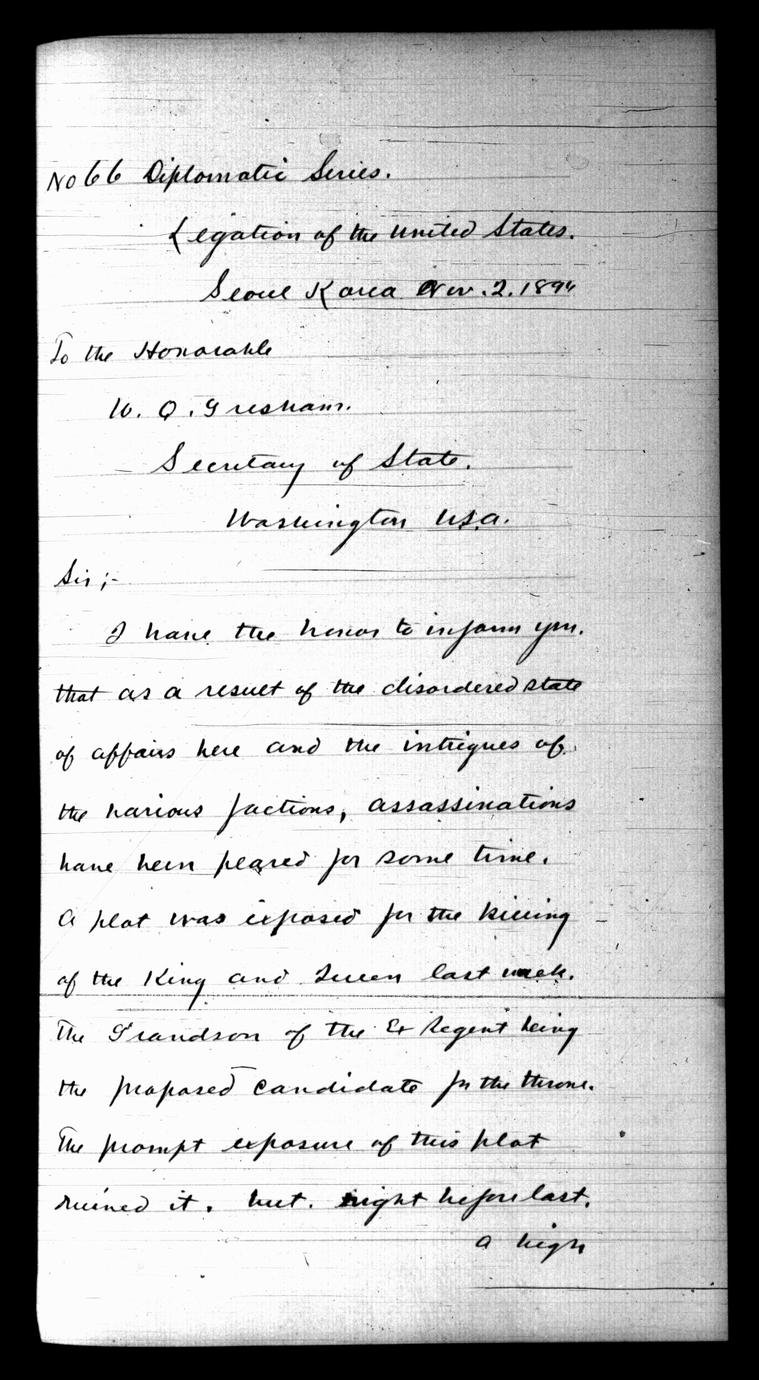 No 66 Diplomatic Series.
Legation of the United States.
Seoul Korea Nov. 2. 1894
To the Honorable
W. Q. Gresham.
Secretary of State.
Washington USA.
Sir;-
I have the honor to inform you.
that as a result of the disordered state
of affairs here and the intrigues of
the various factions, assassinations
have been feared for some time.
A plot was exposed for the killing
of the King and Queen last week.
The Grandson of the Ex Regent being
the proposed candidate for the throne.
The prompt exposure of this plot
ruined it. but. night before last.
a high